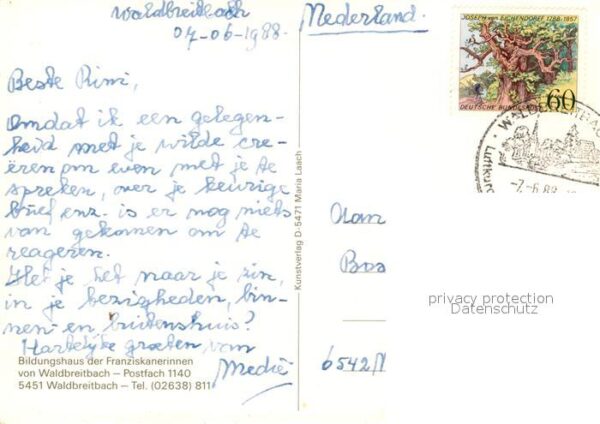 Waldbreitbach
07-06-1988.
Nederland.
JOSEPH von EICHENDORFF 1788-1857
DEUTSCHE BUNDESPOST
60
WALDBREITBACH
Luftkur
-7.-6.88
Beste Rimi,
Omdat ik een gelegen-
heid met je wilde cre-
ëren om even met je te
spreken, over je keurige
brief enz. is er nog niets
van gekomen om te
reageren.
Het je het naar je zin,
in je bezigheden, bin-
nen- en buitenshuis?
Hartelijke groeten, van
Medië
Bildungshaus der Franziskanerinnen
von Waldbreitbach – Postfach 1140
5451 Waldbreitbach – Tel. (02638) 811
Kunstverlag D-5471 Maria Laach
Aan
Bos
6542
privacy protection
Datenschutz